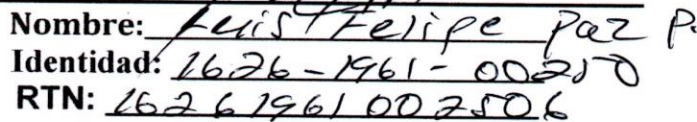 Nombre: Luis Felipe Paz P.
Identidad: 1626-1961-00250
RTN: 16261961002506